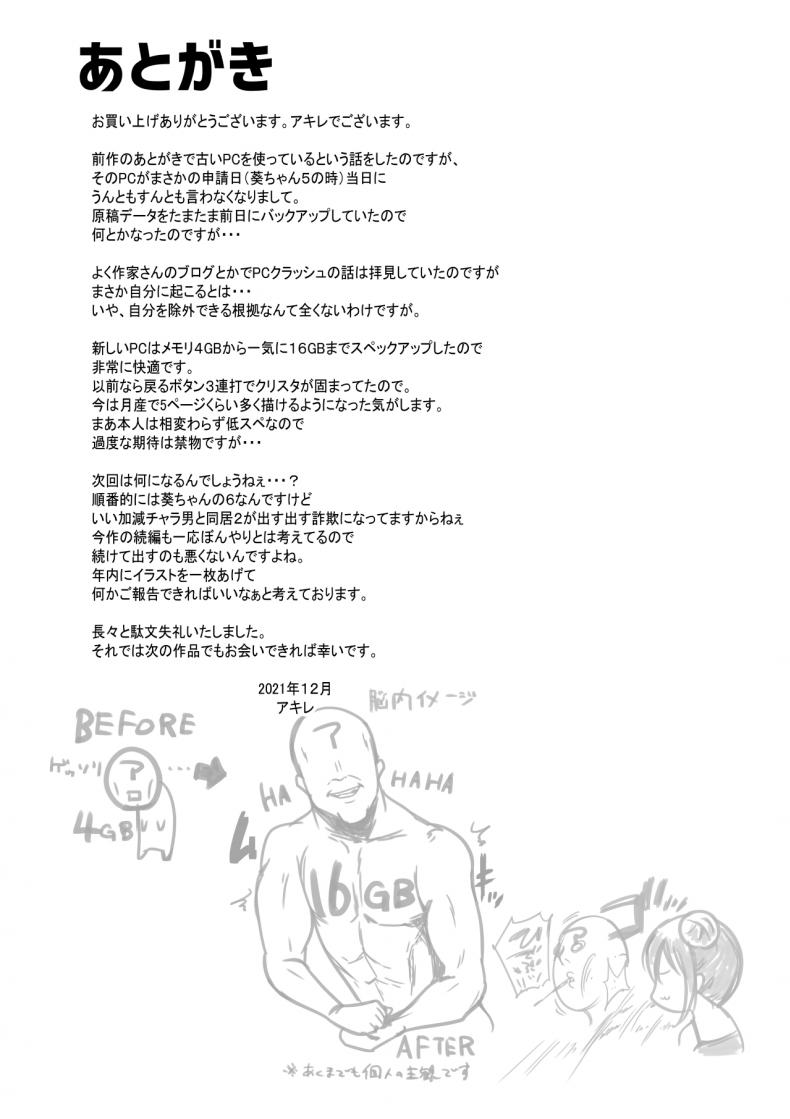 あとがき
お買い上げありがとうございます。アキレでございます。
前作のあとがきで古いPCを使っているという話をしたのですが、
そのPCがまさかの申請日（葵ちゃん５の時）当日に
うんともすんとも言わなくなりまして。
原稿データをたまたま前日にバックアップしていたので
何とかなったのですが・・・
よく作家さんのブログとかでPCクラッシュの話は拝見していたのですが
まさか自分に起こるとは・・・
いや、自分を除外できる根拠なんて全くないわけですが。
新しいPCはメモリ４GBから一気に１６GBまでスペックアップしたので
非常に快適です。
以前なら戻るボタン３連打でクリスタが固まってたので。
今は月産で5ページくらい多く描けるようになった気がします。
まあ本人は相変わらず低スペなので
過度な期待は禁物ですが・・・
次回は何になるんでしょうねぇ・・・？
順番的には葵ちゃんの６なんですけど
いい加減チャラ男と同居２が出す出す詐欺になってますからねぇ
今作の続編も一応ぼんやりとは考えてるので
続けて出すのも悪くないんですよね。
年内にイラストを一枚あげて
何かご報告できればいいなぁと考えております。
長々と駄文失礼いたしました。
それでは次の作品でもお会いできれば幸いです。
2021年１２月
アキレ
脳内イメージ
BEFORE
ゲッソリ
ア
4GB
ア
HA
HAHA
ムキッ
16GB
AFTER
※あくまでも個人の主観です